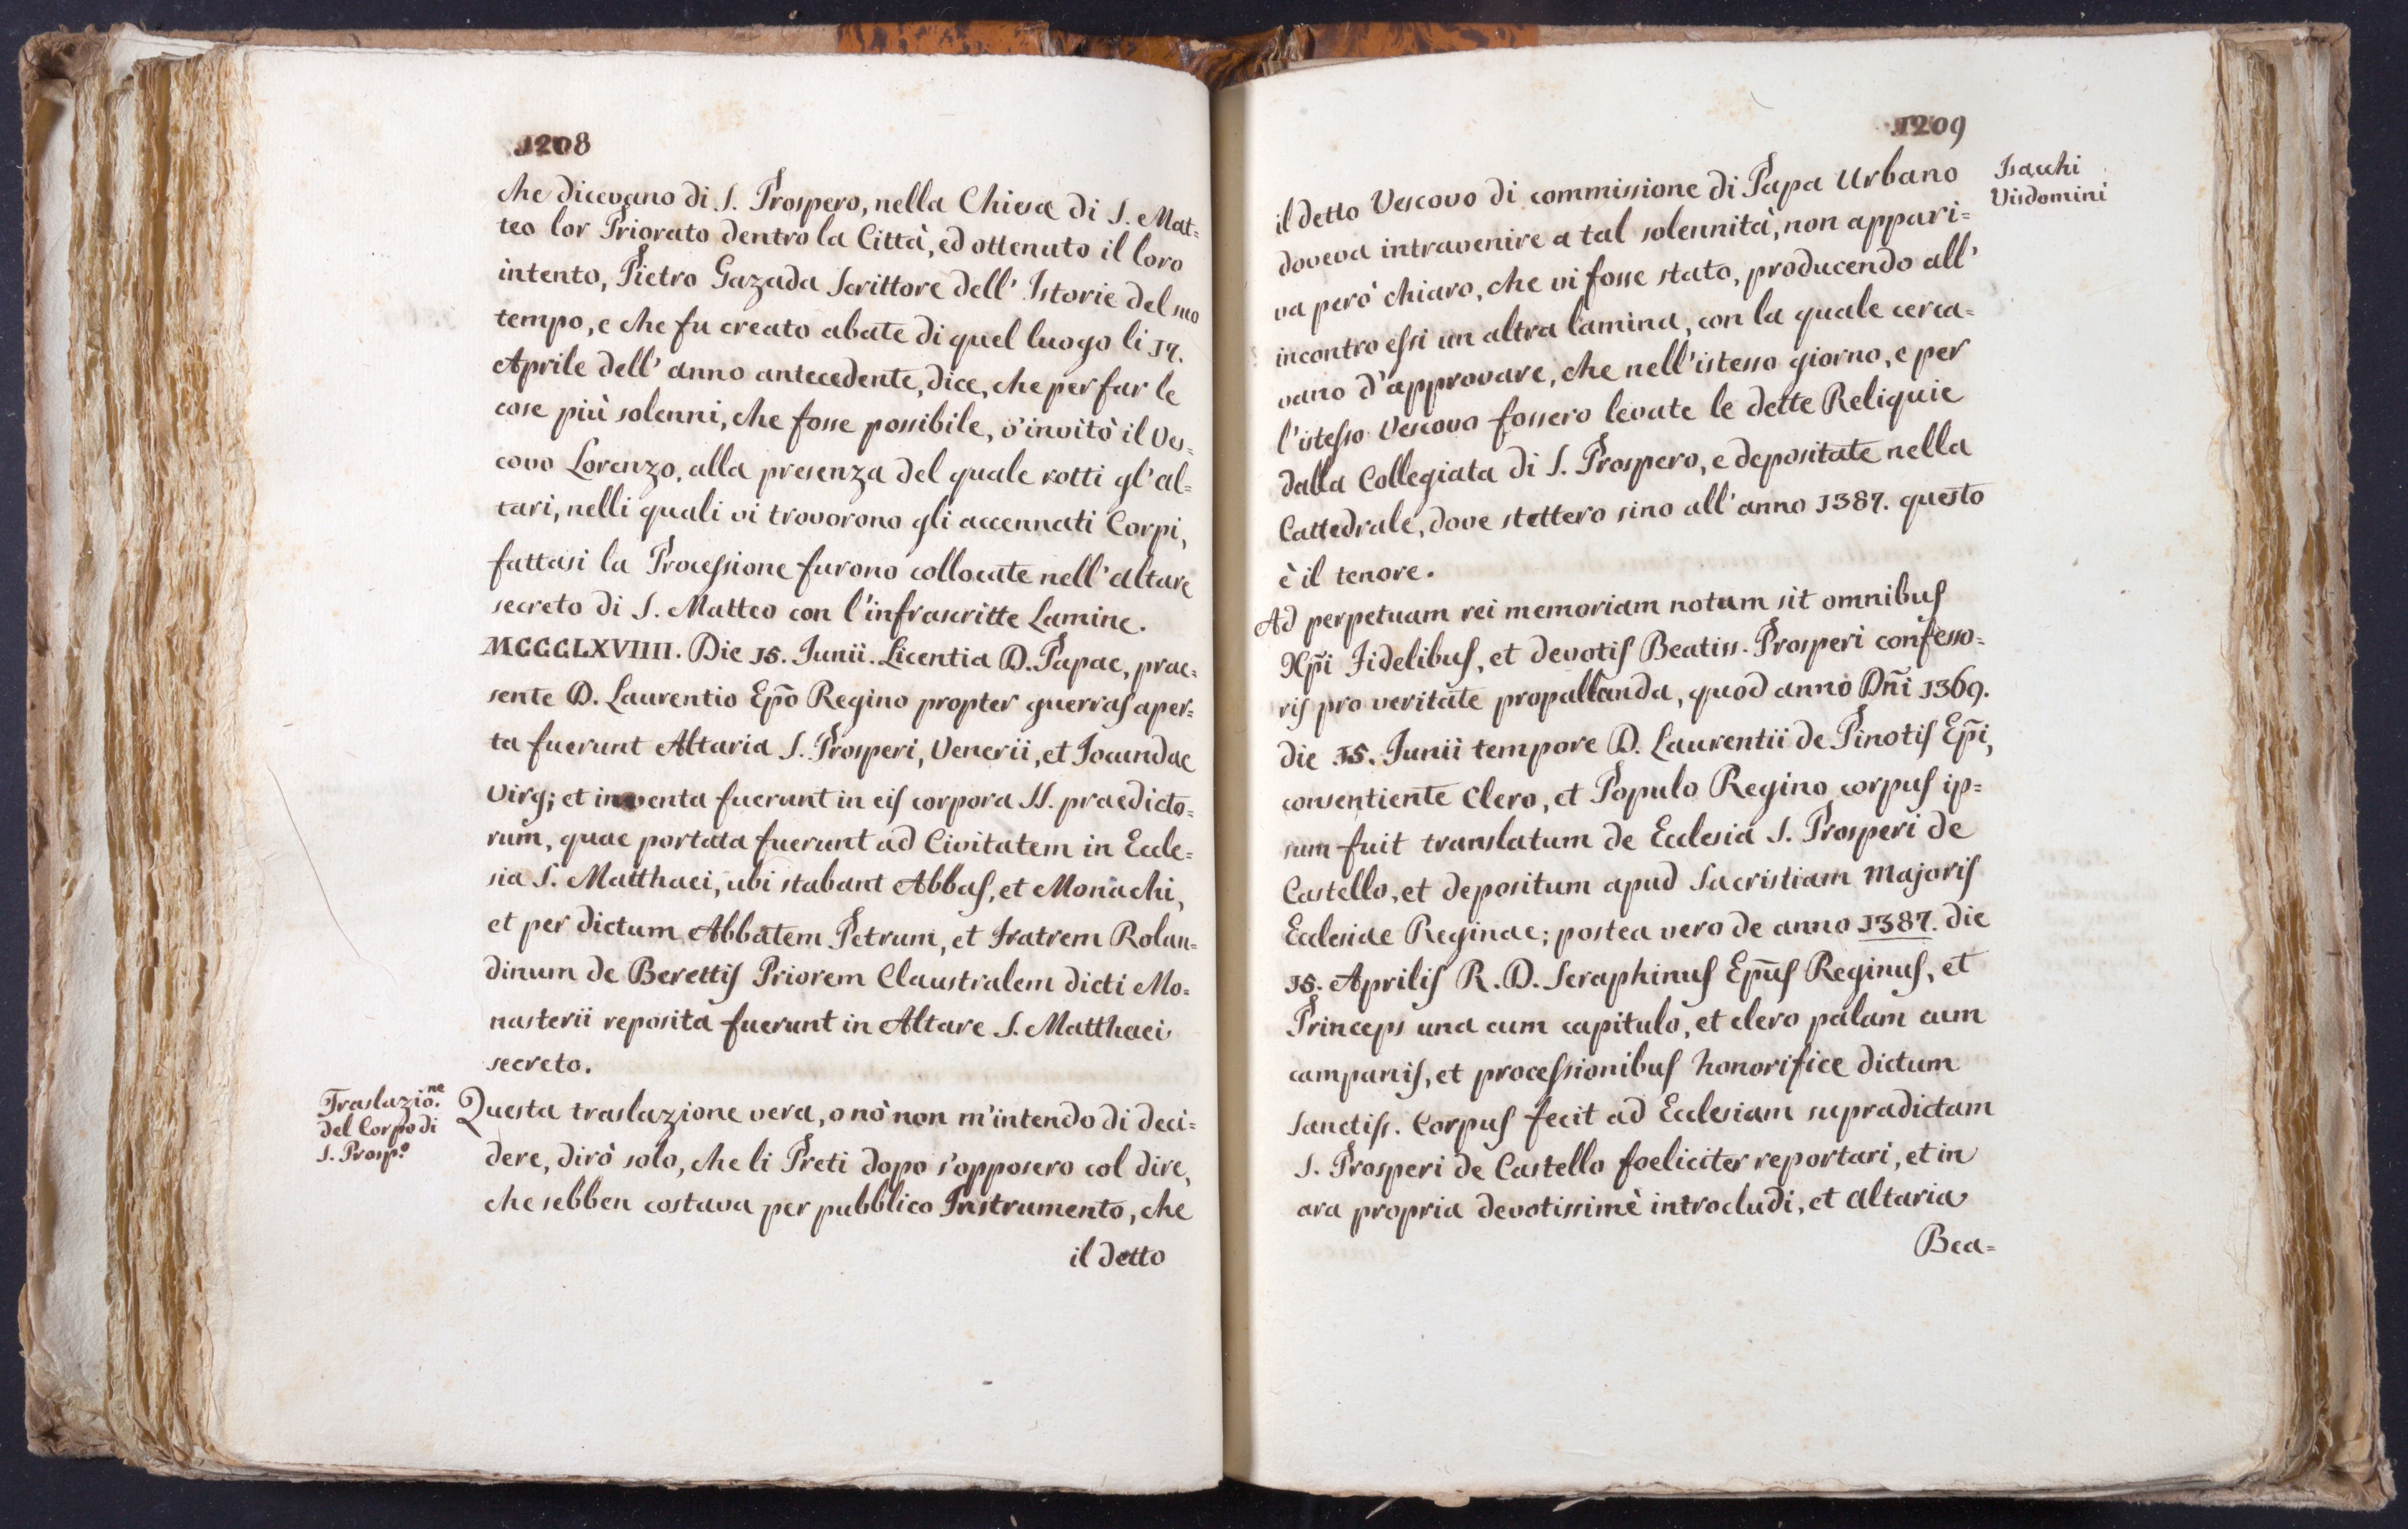 1208
che dicevano di S. Prospero, nella Chiesa di S. Mat=
teo lor Priorato dentro la Città, ed ottenuto il loro
intento, Pietro Gazada Scrittore dell' Istorie del suo
tempo, e che fu creato abate di quel luogo li 17.
Aprile dell' anno antecedente, dice, che per far le
cose più solenni, che fosse possibile, s'invitò il Ves=
covo Lorenzo, alla presenza del quale rotti gl'al=
tari, nelli quali vi trovorono gli accennati Corpi,
fattasi la Processione furono collocate nell' altare
secreto di S. Matteo con l'infrascritte Lamine.
MCCCLXVIIII. Die 15. Junii. Licentia D. Papae, prae=
sente D. Laurentio Epõ Regino propter guerras aper=
ta fuerunt Altaria S. Prosperi, Venerii, et Jocundae
Virg; et inventa fuerunt in eis corpora SS. praedicto=
rum, quae portata fuerunt ad Civitatem in Eccle=
sia S. Matthaei, ubi stabant Abbas, et Monachi,
et per dictum Abbatem Petrum, et Fratrem Rolan=
dinum de Berettis Priorem Claustralem dicti Mo=
nasterii reposita fuerunt in Altare S. Matthaei
secreto.
Traslazio.ne
del Corpo di
S. Prosp.o
Questa traslazione vera, o nò non m'intendo di deci=
dere, dirò solo, che li Preti dopo s'opposero col dire,
che sebben costava per pubblico Instrumento, che
il detto
1209
Isachi
Visdomini
il detto Vescovo di commissione di Papa Urbano
doveva intravenire a tal solennità, non appari=
va però chiaro, che vi fosse stato, producendo all'
incontro essi un altra lamina, con la quale cerca=
vano d'approvare, che nell'istesso giorno, e per
l'istesso Vescovo fossero levate le dette Reliquie
dalla Collegiata di S. Prospero, e depositate nella
Cattedrale, dove stettero sino all'anno 1387. questo
è il tenore.
Ad perpetuam rei memoriam notum sit omnibus
Xp̃i Fidelibus, et devotis Beatiss. Prosperi confesso=
ris pro veritate propallanda, quod anno Dñi 1369.
die 15. Junii tempore D. Laurentii de Pinotis Ep̃i,
consentiente Clero, et Populo Regino corpus ip=
sum fuit translatum de Ecclesia S. Prosperi de
Castello, et depositum apud Sacristiam Majoris
Ecclesiae Reginae; postea vero de anno 1387. die
15. Aprilis R. D. Seraphinus Ep̃us Reginus, et
Princeps una cum capitulo, et clero palam cum
campanis, et processionibus honorifice dictum
Sanctiss. Corpus fecit ad Ecclesiam supradictam
S. Prosperi de Castello foeliciter reportari, et in
ara propria devotissimè introcludi, et altaria
Bea=